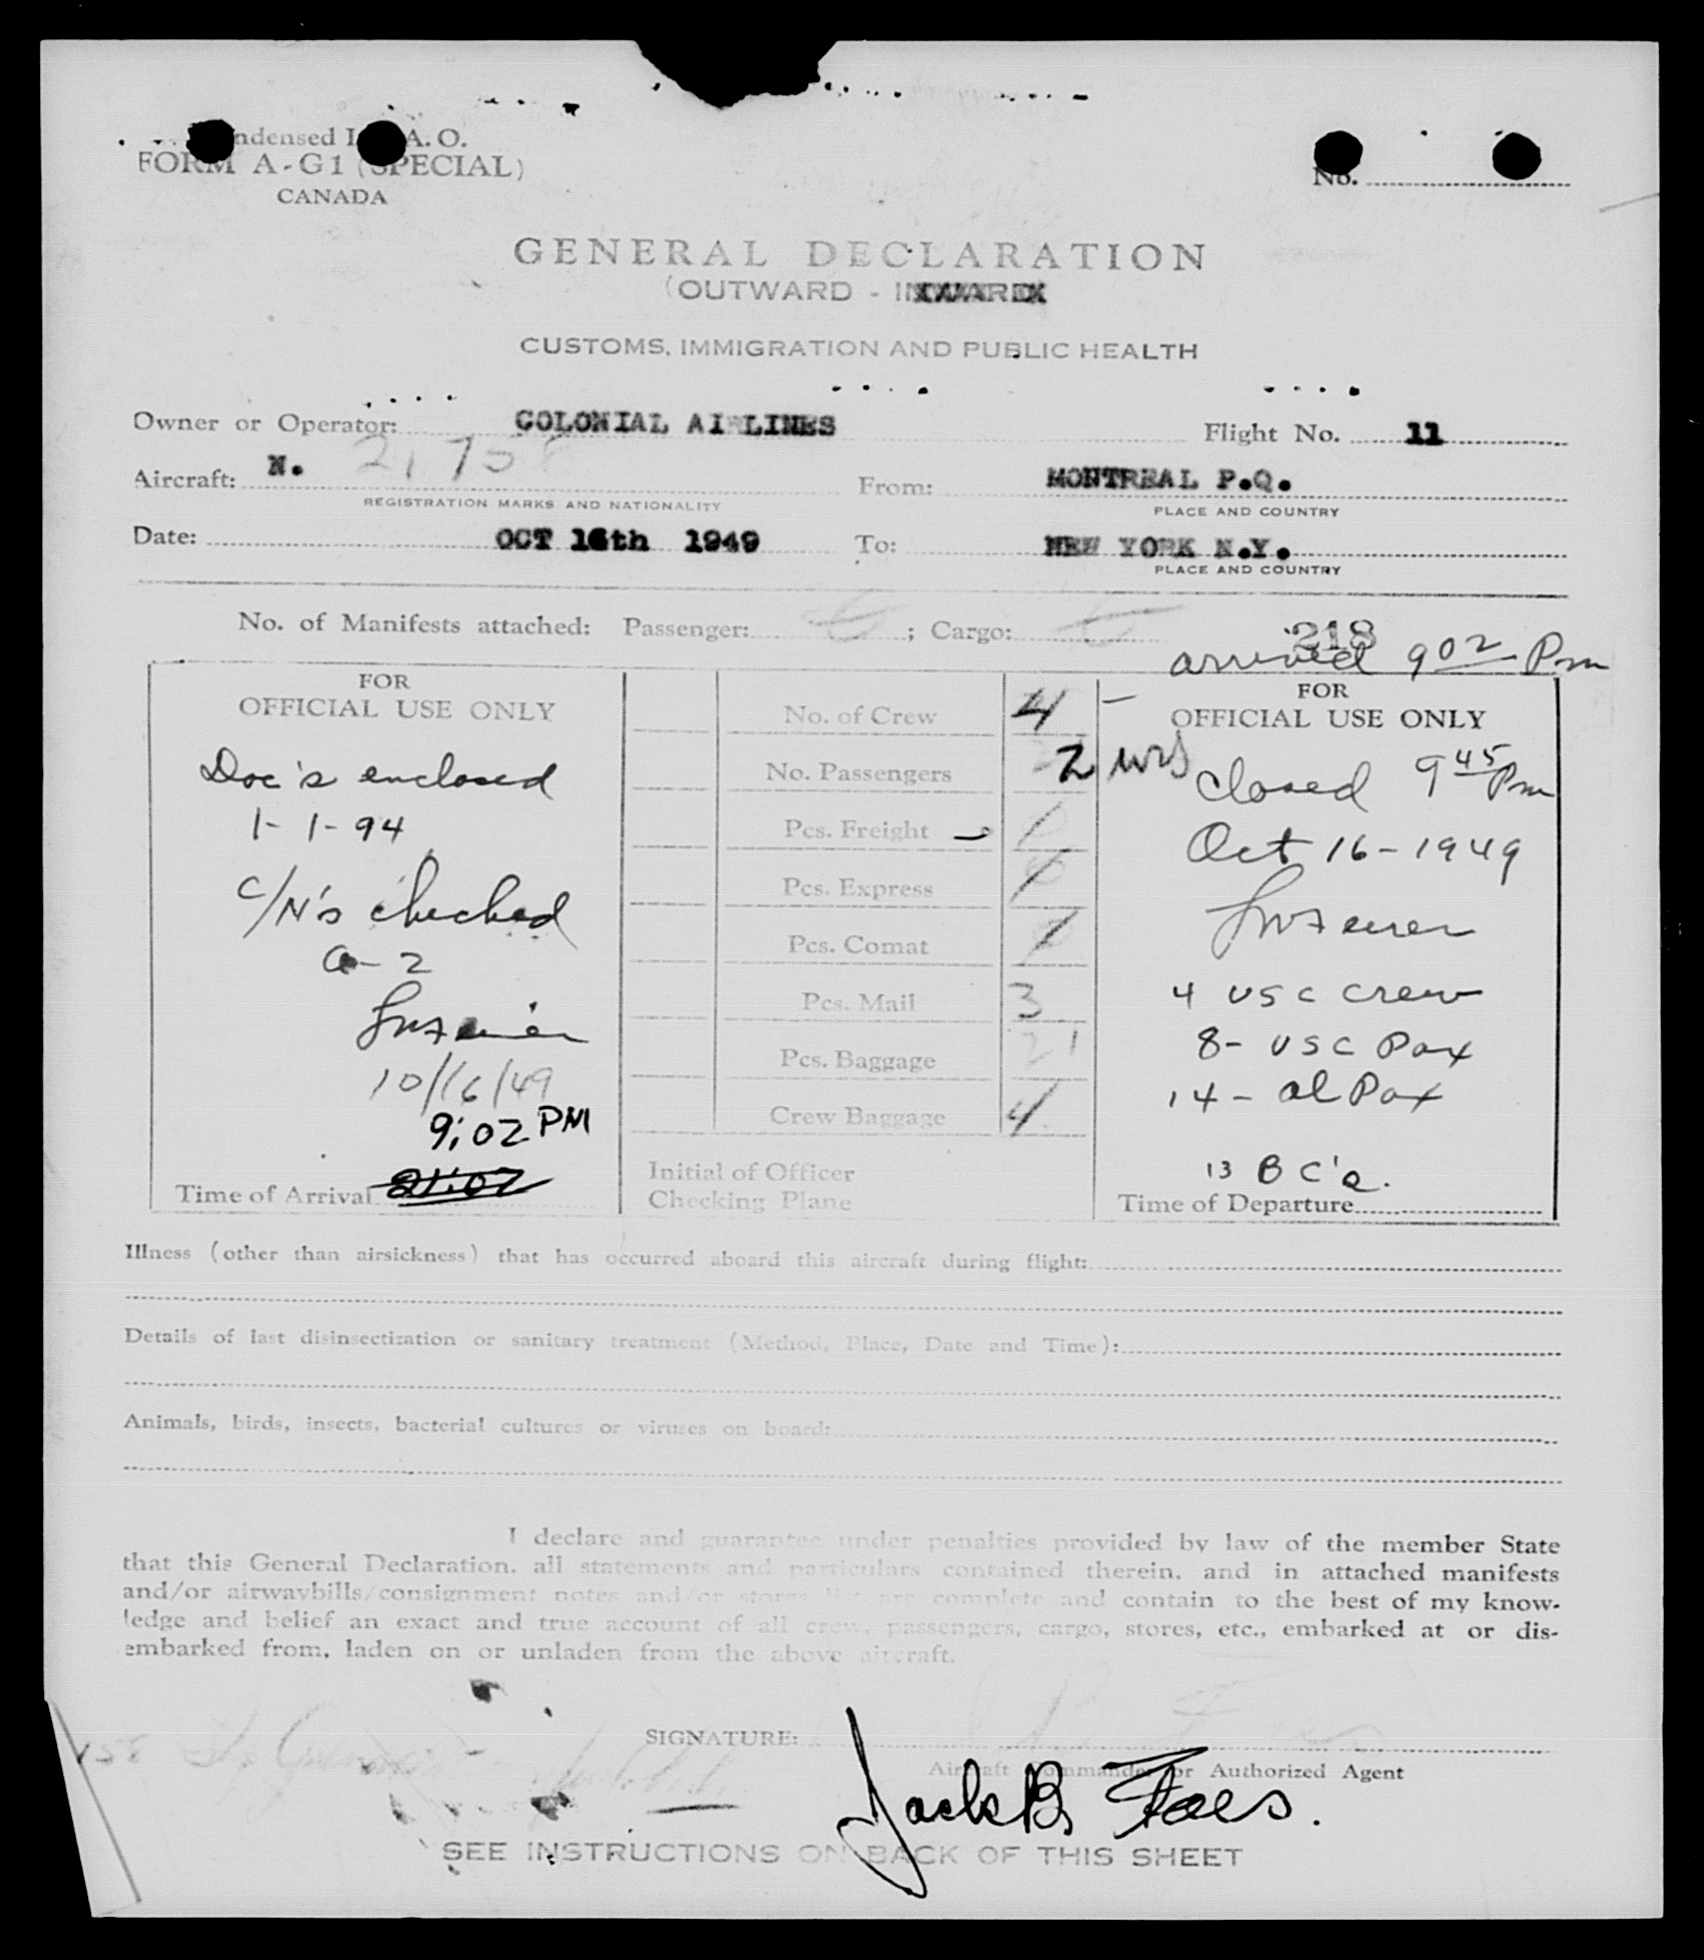 ndensed I A. O.
FORM A-G1 (SPECIAL)
CANADA
No.
GENERAL DECLARATION
(OUTWARD -
CUSTOMS, IMMIGRATION AND PUBLIC HEALTH
Owner or Operator: COLONIAL AI LINES Flight No. 11
Aircraft: N. From: MONTREAL P.Q.
REGISTRATION MARKS AND NATIONALITY PLACE AND COUNTRY
Date: OCT 16th 1949 To: NEW YORK N.Y.
PLACE AND COUNTRY
No. of Manifests attached: Passenger: ; Cargo: 218
arrived 9 02 Pm
FOR
OFFICIAL USE ONLY
Doc's enclosed
1-1-94
C/N's checked
a-2
10/16/49
9:02 PM
Time of Arrival 21:02
No. of Crew 4 -
No. Passengers
Pcs. Freight
Pcs. Express
Pcs. Comat
Pcs. Mail 3
Pcs. Baggage 21
Crew Baggage 4
Initial of Officer
Checking Plane
FOR
OFFICIAL USE ONLY
closed 9 45 Pm
Oct 16-1949
4 USC crew
8- USC Pax
14- al Pax
13 BC's.
Time of Departure
Illness (other than airsickness) that has occurred aboard this aircraft during flight:
Details of last disinsectization or sanitary treatment (Method, Place, Date and Time):
Animals, birds, insects, bacterial cultures or viruses on board:
I declare and guarantee under penalties provided by law of the member State
that this General Declaration, all statements and particulars contained therein, and in attached manifests
and/or airwaybills/consignment notes and/or stores are complete and contain to the best of my know-
ledge and belief an exact and true account of all crew, passengers, cargo, stores, etc., embarked at or dis-
embarked from, laden on or unladen from the above aircraft.
SIGNATURE:
Aircraft Commander or Authorized Agent
Jack B.
SEE INSTRUCTIONS ON BACK OF THIS SHEET